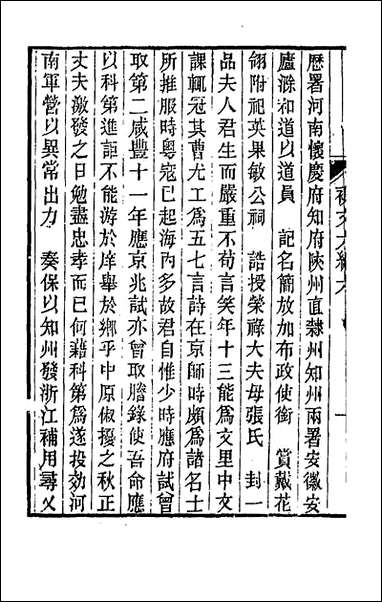 歷署河南懷慶府知府陝州直隸州知州兩署安徽安
廬滁和道以道員　記名簡放加布政使銜　賞戴花
翎附祀英果敏公祠　誥授榮祿大夫母張氏　封一
品夫人君生而嚴重不苟言笑年十三能爲文里中文
課輒冠其曹尤工爲五七言詩在京師時頗爲諸名士
所推服時粵寇已起海內多故君自惟少時應府試曾
取第二咸豐十一年應京兆試亦曾取謄錄使吾命應
以科第進詎不能游於庠舉於鄉乎中原俶擾之秋正
丈夫激發之日勉盡忠孝而已何藉科第爲遂投効河
南軍營以異常出力　奏保以知州發浙江補用尋乂